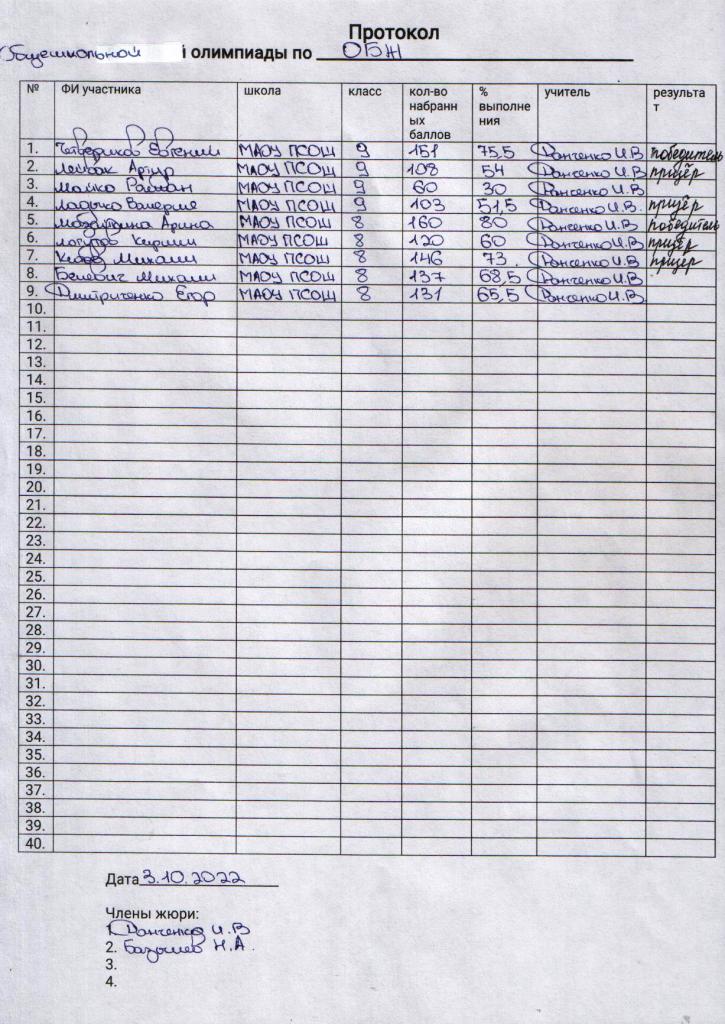 Протокол
Общешкольной й олимпиады по ОБЖ
№ ФИ участника школа класс кол-во набранных баллов % выполнения учитель результат
1. Четвериков Евгений МАОУ ПСОШ 9 151 75,5 Данченко И.В победитель
2. Артур МАОУ ПСОШ 9 108 54 Данченко И.В. призёр
3. МАОУ ПСОШ 9 60 30 Данченко И.В
4. Валерия МАОУ ПСОШ 9 103 51,5 Данченко И.В. призёр
5. Арина МАОУ ПСОШ 8 160 80 Данченко И.В победитель
6. Логутов Кирилл МАОУ ПСОШ 8 120 60 Данченко И.В призёр
7. Михаил МАОУ ПСОШ 8 146 73. Данченко И.В призёр
8. Белевич Михаил МАОУ ПСОШ 8 137 68,5 Данченко И.В
9. Дмитриченко Егор МАОУ ПСОШ 8 131 65,5 Данченко И.В
10.
11.
12.
13.
14.
15.
16.
17.
18.
19.
20.
21.
22.
23.
24.
25.
26.
27.
28.
29.
30.
31.
32.
33.
34.
35.
36.
37.
38.
39.
40.
Дата 3.10.2022
Члены жюри:
1. Данченко И.В
2. Н.А.
3.
4.